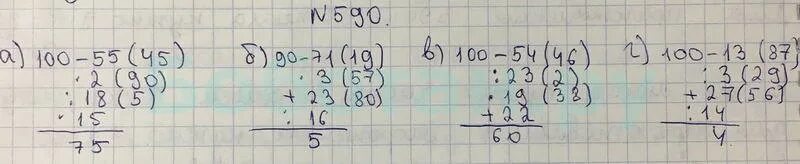 №590.
а) 100-55 (45) б) 90-71 (19) в) 100-54 (46) г) 100-13 (87)
· 2 (90) · 3 (57) : 23 (2) : 3 (29)
: 18 (5) + 23 (80) · 19 (38) + 27 (56)
· 15 : 16 + 22 : 14
75 5 60 4.